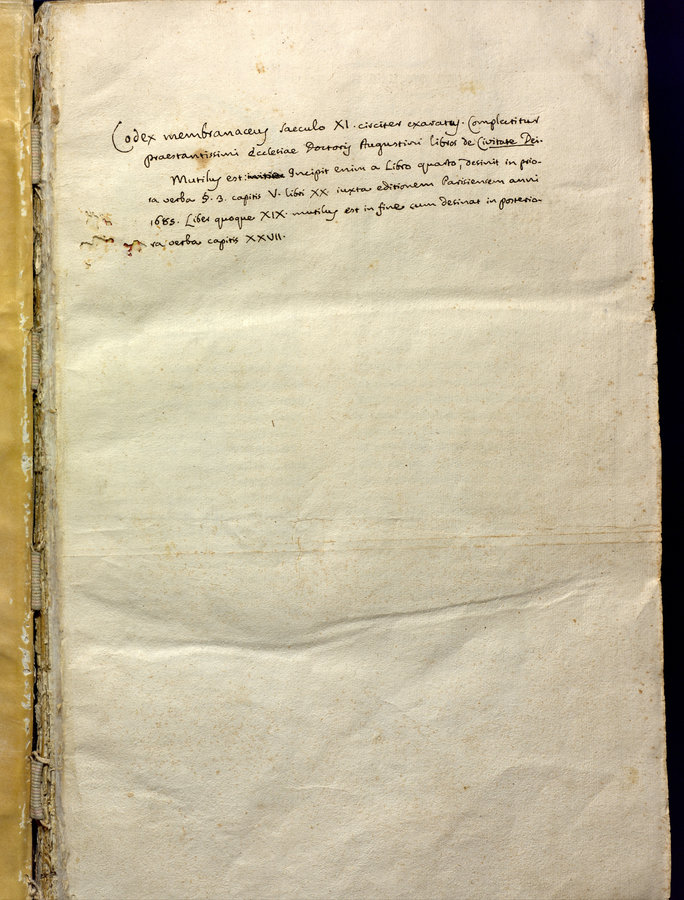 Codex membranaceus saeculo XI. circiter exaratus. Complectitur
praestantissimi Ecclesiae Doctoris Augustini libros de Civitate Dei.
Mutilus est: Incipit enim a Libro quarto, desinit in prio-
ra verba §. 3. capitis V. libri XX. iuxta editionem Parisiensem anni
1685. Liber quoque XIX. mutilus est in fine cum desinat in posterio-
ra verba capitis XXVII.